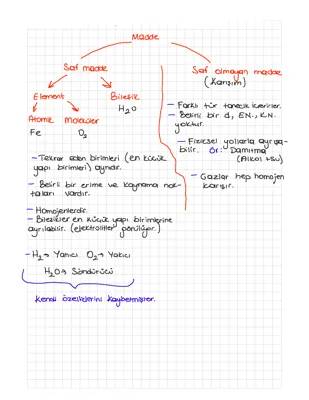 Madde
Saf madde
Saf olmayan madde
(Karışım)
Element
Bileşik
H₂O
Atomik Moleküler
Fe O₂
- Farklı tür tanecik içerirler.
- Belirli bir d, E.N., K.N. yoktur.
- Fiziksel yollarla ayrışabilir. Ör: Damıtma
(Alkol + su)
- Gazlar hep homojen
karışır.
- Tekrar eden birimleri (en küçük
yapı birimleri) aynıdır.
- Belirli bir erime ve kaynama nok-
taları vardır.
- Homojenlerdir.
- Bileşikler en küçük yapı birimlerine
ayrılabilir. (elektroliz)
- H₂ → Yanıcı O₂ → Yakıcı
H₂O → Söndürücü
Kendi özelliklerini kaybetmişler.